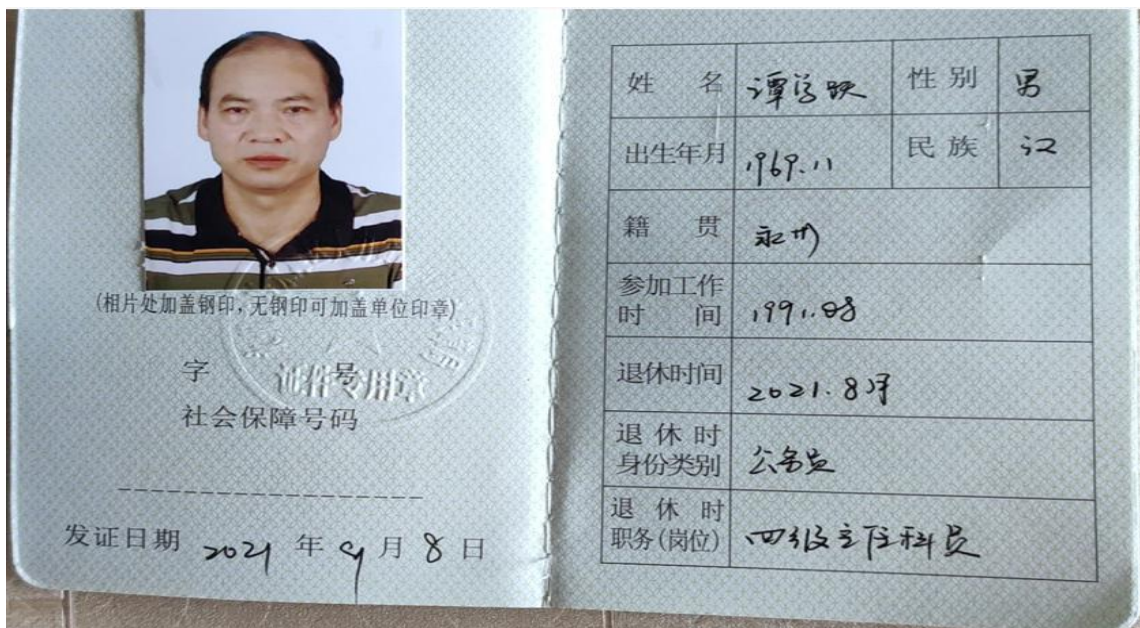 (相片处加盖钢印，无钢印可加盖单位印章)
字 号
证件专用章
社会保障号码
发证日期 2021 年 9 月 8 日
姓 名 谭 跃 性别 男
出生年月 1969.11 民族 汉
籍 贯 永州
参加工作时 间 1991.08
退休时间 2021.8月
退休时身份类别 公务员
退休时职务(岗位) 四级主任科员